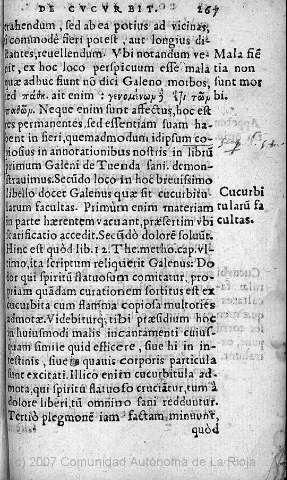 DE CVCVRBIT. 267
trahendum, sed ab ea potius ad vicinas,
si commodè fieri potest, aut longius di-
stantes, reuellendum. Vbi notandum ve-
nit, ex hoc loco perspicuum esse mala
quæ adhuc fiunt nõ dici Galeno morbos,
sed πάθη. ait enim: γενομένων ἤδη τῶν
παθῶν. Neque enim sunt affectus, hoc est
res permanentes, sed essentiam suam ha-
bent in fieri, quemadmodum idipsum co-
piosius in annotationibus nostris in librũ
primum Galeni de Tuenda sani. demon-
strauimus. Secũdo loco in hoc breuissimo
libello docet Galenus quæ sit cucurbitu-
larum facultas. Primum enim materiam
in parte hærentem vacuant, præsertim vbi
scarificatio accedit. Secũdò dolorē soluũt.
Hinc est quòd lib. 12. The. metho. cap. vl-
timo, ita scriptum reliquerit Galenus: Do
lor qui spiritũ flatuosum comitatur, pro-
priam quãdam curationem sortitus est ex
cucurbita cum flamma copiosa multoties
admotæ. Videbiturq; tibi præsidium hoc
in huiusmodi malis incantamenti cuius-
quam simile quid efficere, siue hi in in-
testinis, siue in quauis corporis particula
sunt excitati. Illico enim cucurbitula ad-
mota, qui spiritu flatuoso cruciãtur, tum à
dolore liberi, tũ omnino sani redduntur.
Tertiò phlegmonē iam factam minuunt,
quòd
Mala fiẽ
tia non
sunt mor
bi.
Cucurbi
tularũ fa
cultas.
(c) 2007 Comunidad Autónoma de La Rioja